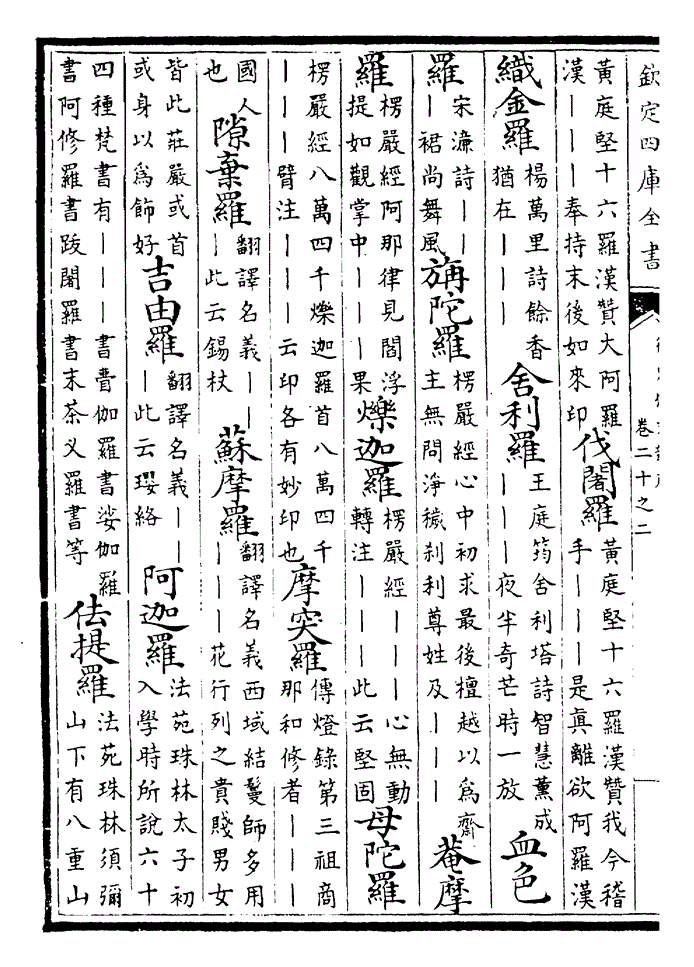 欽定四庫全書
卷二十之二
黃庭堅十六羅漢贊大阿羅
漢｜｜｜奉持末後如來印
伐闍羅
黃庭堅十六羅漢贊我今稽
手｜｜｜是真離欲阿羅漢
織金羅
楊萬里詩餘香
猶在｜｜｜
舍利羅
王庭筠舍利塔詩智慧薰成
｜｜｜夜半奇芒時一放
血色
羅
宋濂詩｜｜
｜裙尚舞風
旃陀羅
楞嚴經心中初求最後檀越以為齋
主無問淨穢剎利尊姓及｜｜｜
菴摩
羅
楞嚴經阿那律見閻浮
提如觀掌中｜｜｜果
爍迦羅
楞嚴經｜｜｜心無動
轉注｜｜｜此云堅固
母陀羅
楞嚴經八萬四千爍迦羅首八萬四千
｜｜｜臂注｜｜｜云印各有妙印也
摩突羅
傳燈錄第三祖商
那和修者｜｜｜
國人
也
隙棄羅
翻譯名義｜｜
｜此云錫杖
蘇摩羅
翻譯名義西域結鬘師多用
｜｜｜花行列之貴賤男女
皆此莊嚴或首
或身以為飾好
吉由羅
翻譯名義｜｜
｜此云瓔絡
阿迦羅
法苑珠林太子初
入學時所說六十
四種梵書有｜｜｜書瞢伽羅書娑伽羅
書阿修羅書跋闍羅書末荼义羅書等
佉提羅
法苑珠林須彌
山下有八重山